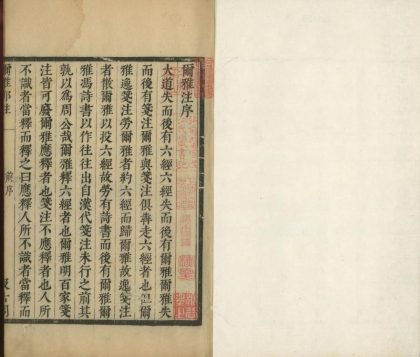 爾雅注序
大道失而後有六經六經失而後有爾雅爾雅失
而後有箋注爾雅與箋注俱奔走六經者也但爾
雅逸箋注勞爾雅者約六經而歸爾雅故逸箋注
者散爾雅以投六經故勞有詩書而後有爾雅爾
雅馮詩書以作往往出自漢代箋注未行之前其
孰以為周公哉爾雅釋六經者也爾雅明百家箋
注皆可廢爾雅應釋者也箋注不應釋者也人所
不識者當釋而釋之曰應釋人所不識者當釋而
爾雅鄭注
序
汲古閣